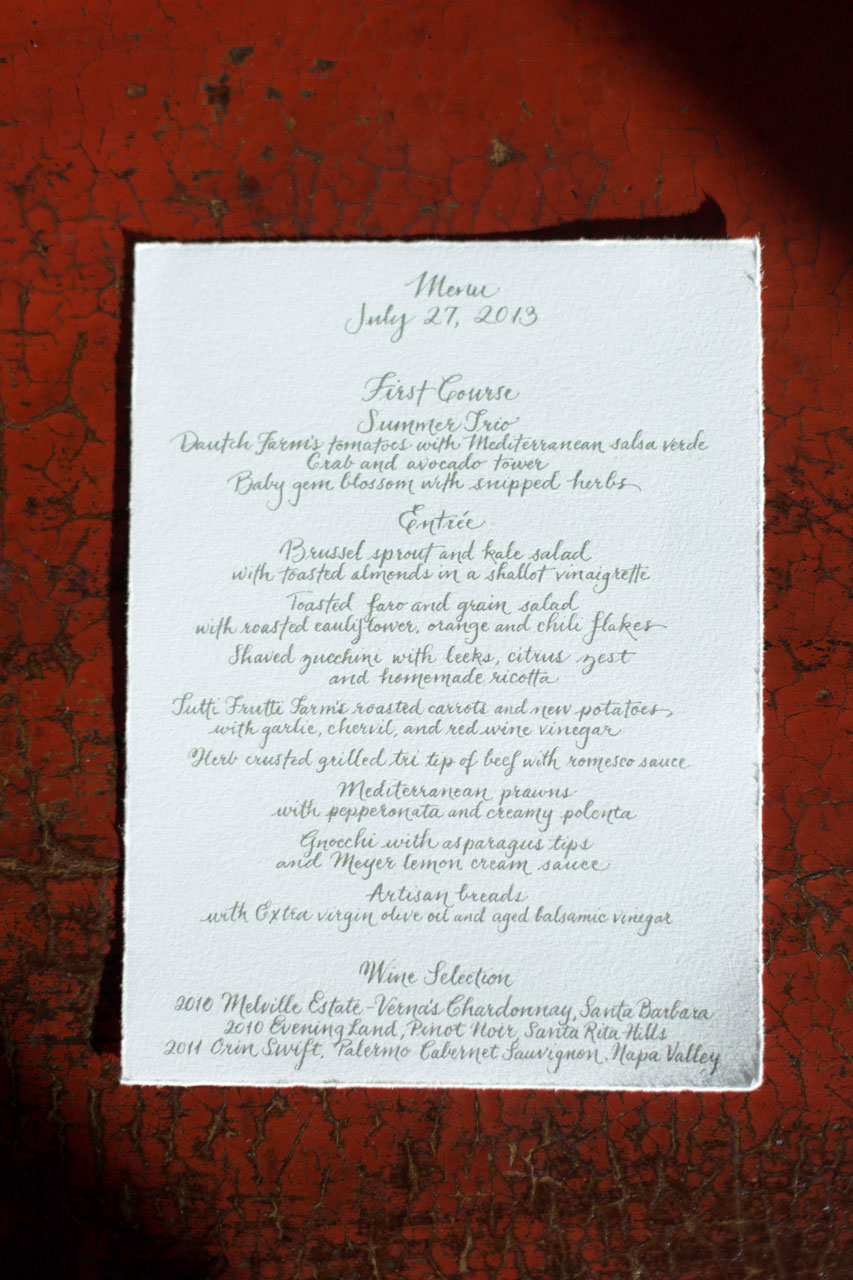 Menu
July 27, 2013
First Course
Summer Trio
Dautch Farm's tomatoes with Mediterranean salsa verde
Crab and avocado tower
Baby gem blossom with snipped herbs
Entrée
Brussel sprout and kale salad
with toasted almonds in a shallot vinaigrette
Toasted faro and grain salad
with roasted cauliflower, orange and chili flakes
Shaved zucchini with leeks, citrus zest
and homemade ricotta
Tutti Frutti Farm's roasted carrots and new potatoes,
with garlic, chervil, and red wine vinegar
Herb crusted grilled tri tip of beef with romesco sauce
Mediterranean prawns
with pepperonata and creamy polenta
Gnocchi with asparagus tips
and Meyer lemon cream sauce
Artisan breads
with Extra virgin olive oil and aged balsamic vinegar
Wine Selection
2010 Melville Estate-Verna's Chardonnay, Santa Barbara
2010 Evening Land, Pinot Noir, Santa Rita Hills
2011 Orin Swift, Palermo Cabernet Sauvignon, Napa Valley